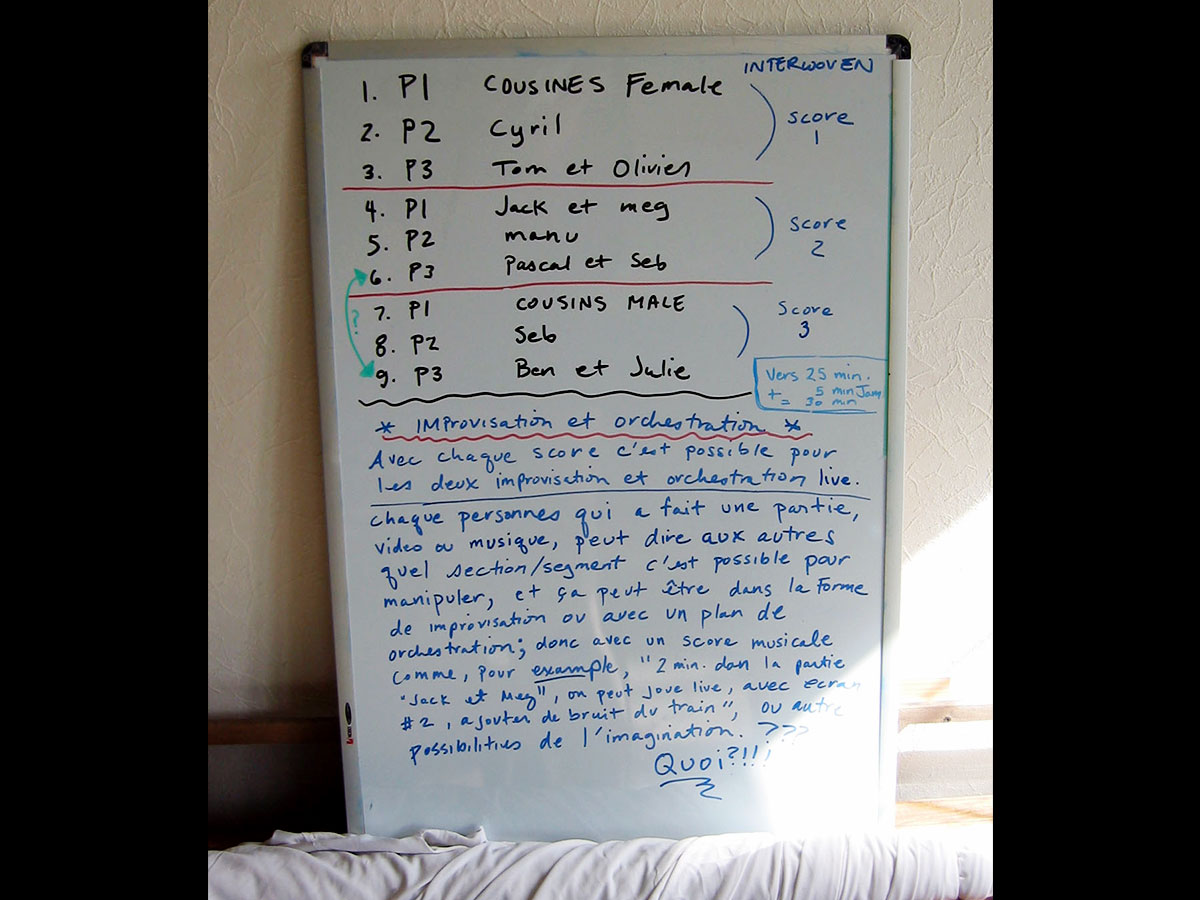 INTERWOVEN
1. P1 COUSINES Female
2. P2 Cyril
3. P3 Tom et Olivier
score
1
4. P1 Jack et meg
5. P2 manu
6. P3 Pascal et Seb
score
2
7. P1 COUSINS MALE
8. P2 Seb
9. P3 Ben et Julie
Score
3
?
Vers 25 min.
+ 5 min Jam
= 30 min
* IMProvisation et orchestration *
Avec chaque score c'est possible pour
les deux improvisation et orchestration live.
chaque personnes qui a fait une partie,
video ou musique, peut dire aux autres
quel section/segment c'est possible pour
manipuler, et ça peut être dans la Forme
de improvisation ou avec un plan de
orchestration; donc avec un score musicale
comme, pour example, "2 min. dan la partie
"Jack et Meg", on peut joue live, avec ecran
#2, ajouter de bruit du train", ou autre
possibilities de l'imagination. ???
Quoi?!!!